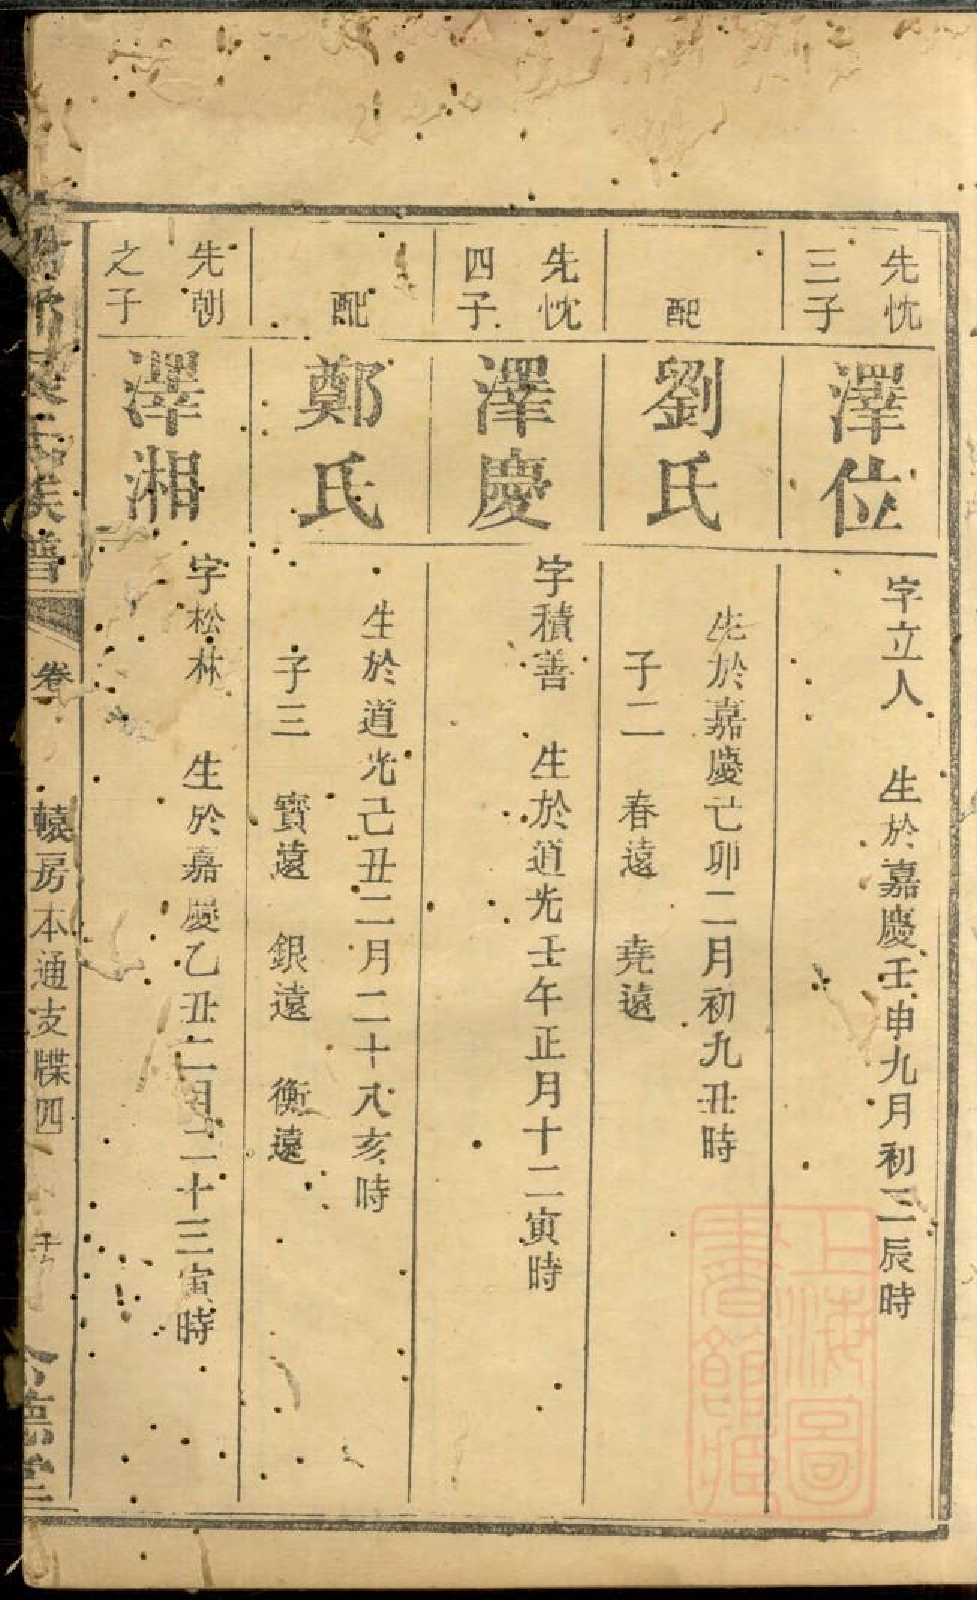 先忱
三子
澤位
字立人　生於嘉慶壬申九月初三辰時
配
劉氏
生於嘉慶己卯二月初九丑時
子二　春遠　堯遠
先忱
四子
澤慶
字積善　生於道光壬午正月十二寅時
配
鄭氏
生於道光己丑二月二十八亥時
子三　寶遠　銀遠　衡遠
先朝
之子
澤湘
字松林　生於嘉慶乙丑二月二十三寅時
氏族譜
卷
轅房本通支牒四
德堂
上海圖
書館藏